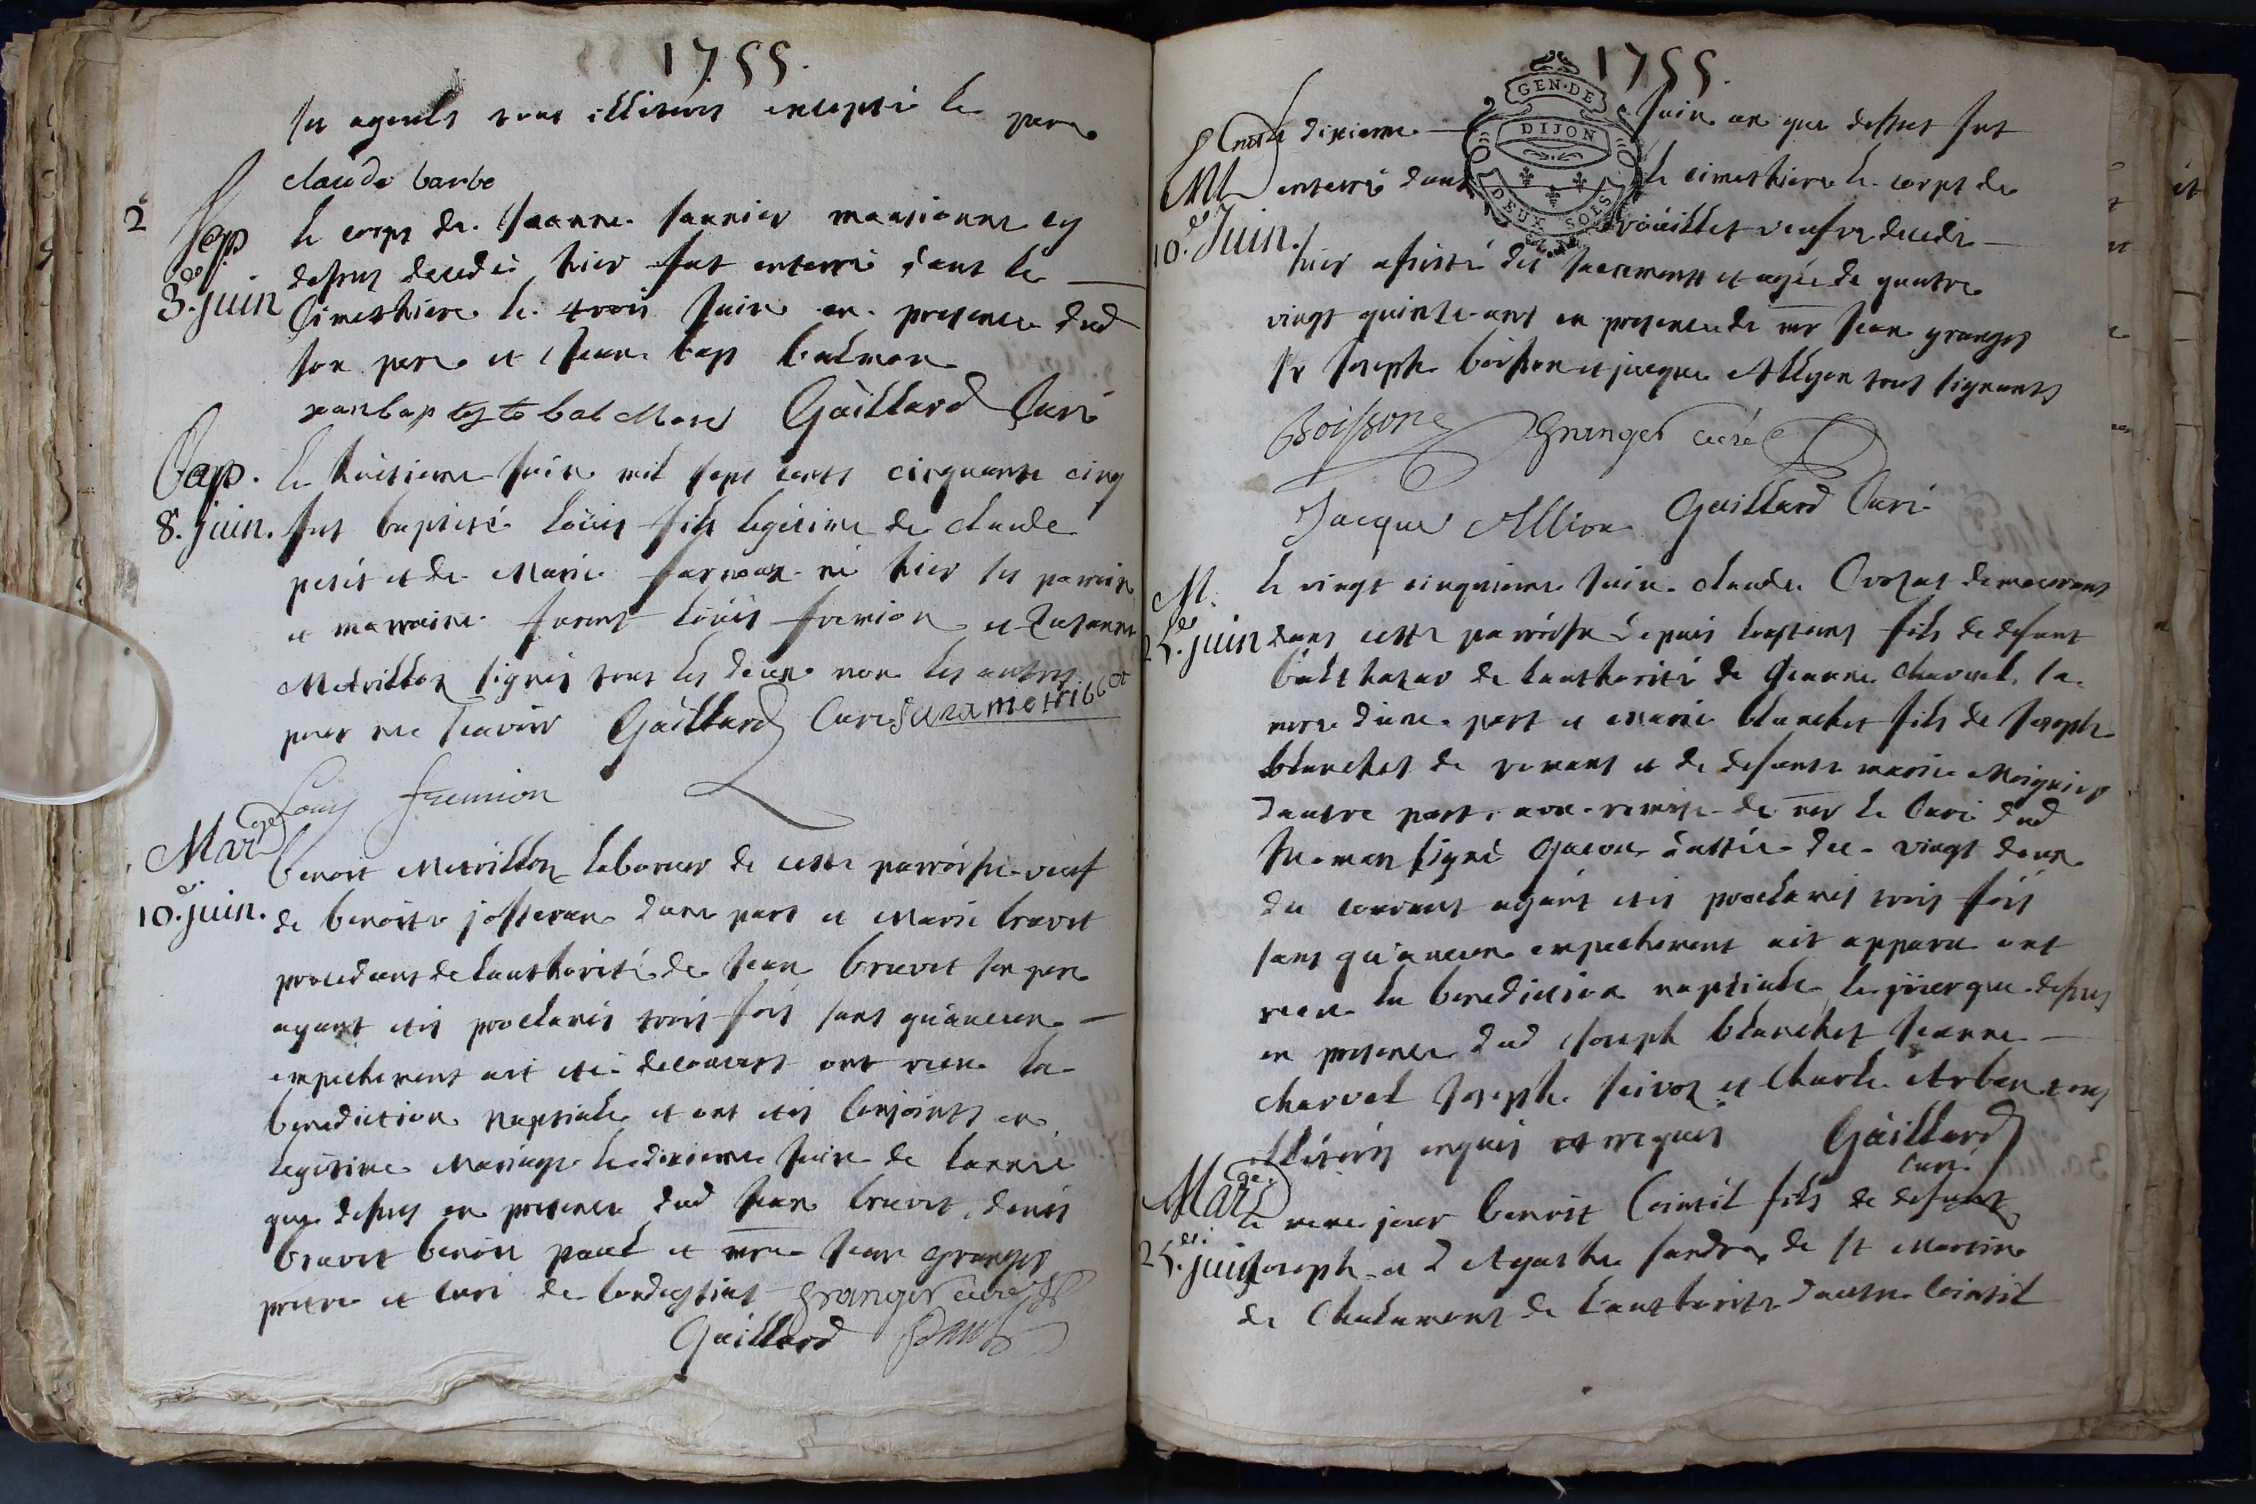 1755.
ses ayeuls tous illiteres excepté le pere
claude barbe
2
Sep
le corps de Jeanne saunier mansionne cy
dessus decedé hier fut enterré dans le
3.e juin
Cimethiere le trois Juin en presence dud
son pere et Jean bap balmon
jean baptyste balMon Gaillard Curé
Bap.
le huitieme Juin mil sept cents cinquante cinq
8. juin.
fut baptisé Loüis fils legitime de claude
petit et de Marie né hier ses parrein
et marraine furent Loüis fremion et Suzanne
Metrilliot signés tous les deux non les autres
pour ne scavoir Gaillard Curé
Louis fremion
Mariage
benoit Metrillot laboureur de cette parroisse veuf
10.e juin.
de benoite josserand dune part et Marie bravet
procedant de lauthorité de Jean bravet son pere
ayant étés proclamés trois fois sans qu'aucun
empechement ait été decouvert ont receu la
benediction nuptiale et ont étés conjoints en
legitime Mariage le dixieme Juin de lannée
que dessus en presence dud Jean bravet, denis
bravet benoit paul et mre Jean granger
pretre et curé de granger curé
Gaillard Paul
1755.
GEN·DE
DIJON
DEUX SOLS
Mort
Le dixieme Juin an que dessus fut
enterré dans le cimethiere le corps de
10.e Juin.
veufve decedé
hier assisté des sacrements et agée de quatre
vingt quinze ans en presence de mre Jean granger
Sr Joseph boisson et jacque Allyon tous signants
Boisson Granger curé
Jacque Allion Gaillard Curé
M.
le vingt cinquieme Juin claude Crozat demeurant
25.e juin
dans cette parroisse depuis longtems fils de defunt
balthazar de lauthorité de Jeanne charvet sa
mere d'une part et Marie blanchet fille de Joseph
blanchet de et de defunte marie
d'autre part, avec remise de mr le Curé dud
signé dattée du vingt deux
du courant ayant étés proclamés trois fois
sans qu'aucun empechement ait apparu ont
receu la benediction nuptiale le jour que dessus
en presence dud Joseph blanchet Jeanne
charvet Joseph et Charle Arban tous
illiterés enquis et requis Gaillard
Curé
Mariage
le meme jour benoit Cointit fils de defunt
25.e juin
Joseph et d'Agathe de St Martin
de Chalamont de lauthorité d'autre Cointit